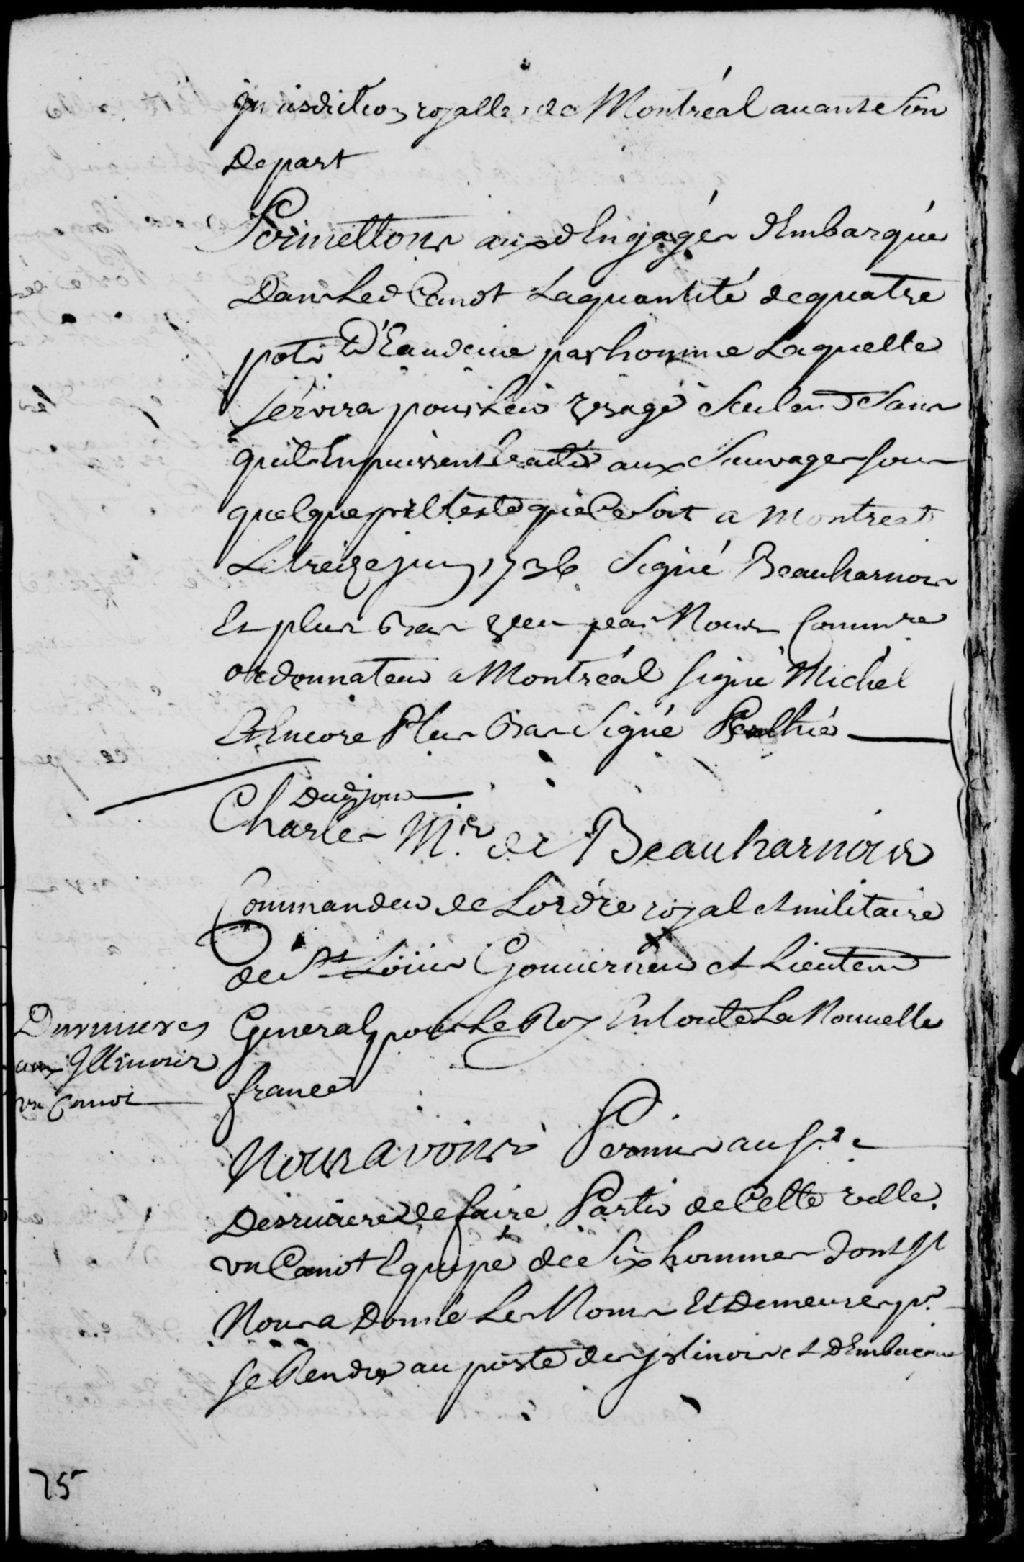 Jurisdiction royalle de Montréal auant Son
Depart
Permettons aux d Engagés d'Embarquér
Dans Led Canot La quantité de quatre
pots D'Eaudevie par homme Laquelle
Servira pour Leur usage Seulemt Sans
quils En puissent traiter aux Sauvages sous
quelque prétexte que Ce Soit a Montreal
Le treize juin 1736 Signé Beauharnois
Et plus bas veu par Nous Commre
ordonnateur a Montréal signé Michel
Et Encore Plus bas Signé Porlhié
Dud jour
Charles Mis de Beauharnois
Commandeur de Lordre royal et militaire
de St Loüis Gouuerneur et Lieutent
General pour Le Roy En toute La Nouuelle
france
Desrivieres
aux Illinois
un Canot
Nous avons Permis au Sr
Desriviere de faire Partir de Cette ville
un Canot Equipé de Six hommes dont Jl
Nous a Donné Les Noms Et Demeures pr
se Rendre au poste des jslinois et d'Embarquer
75